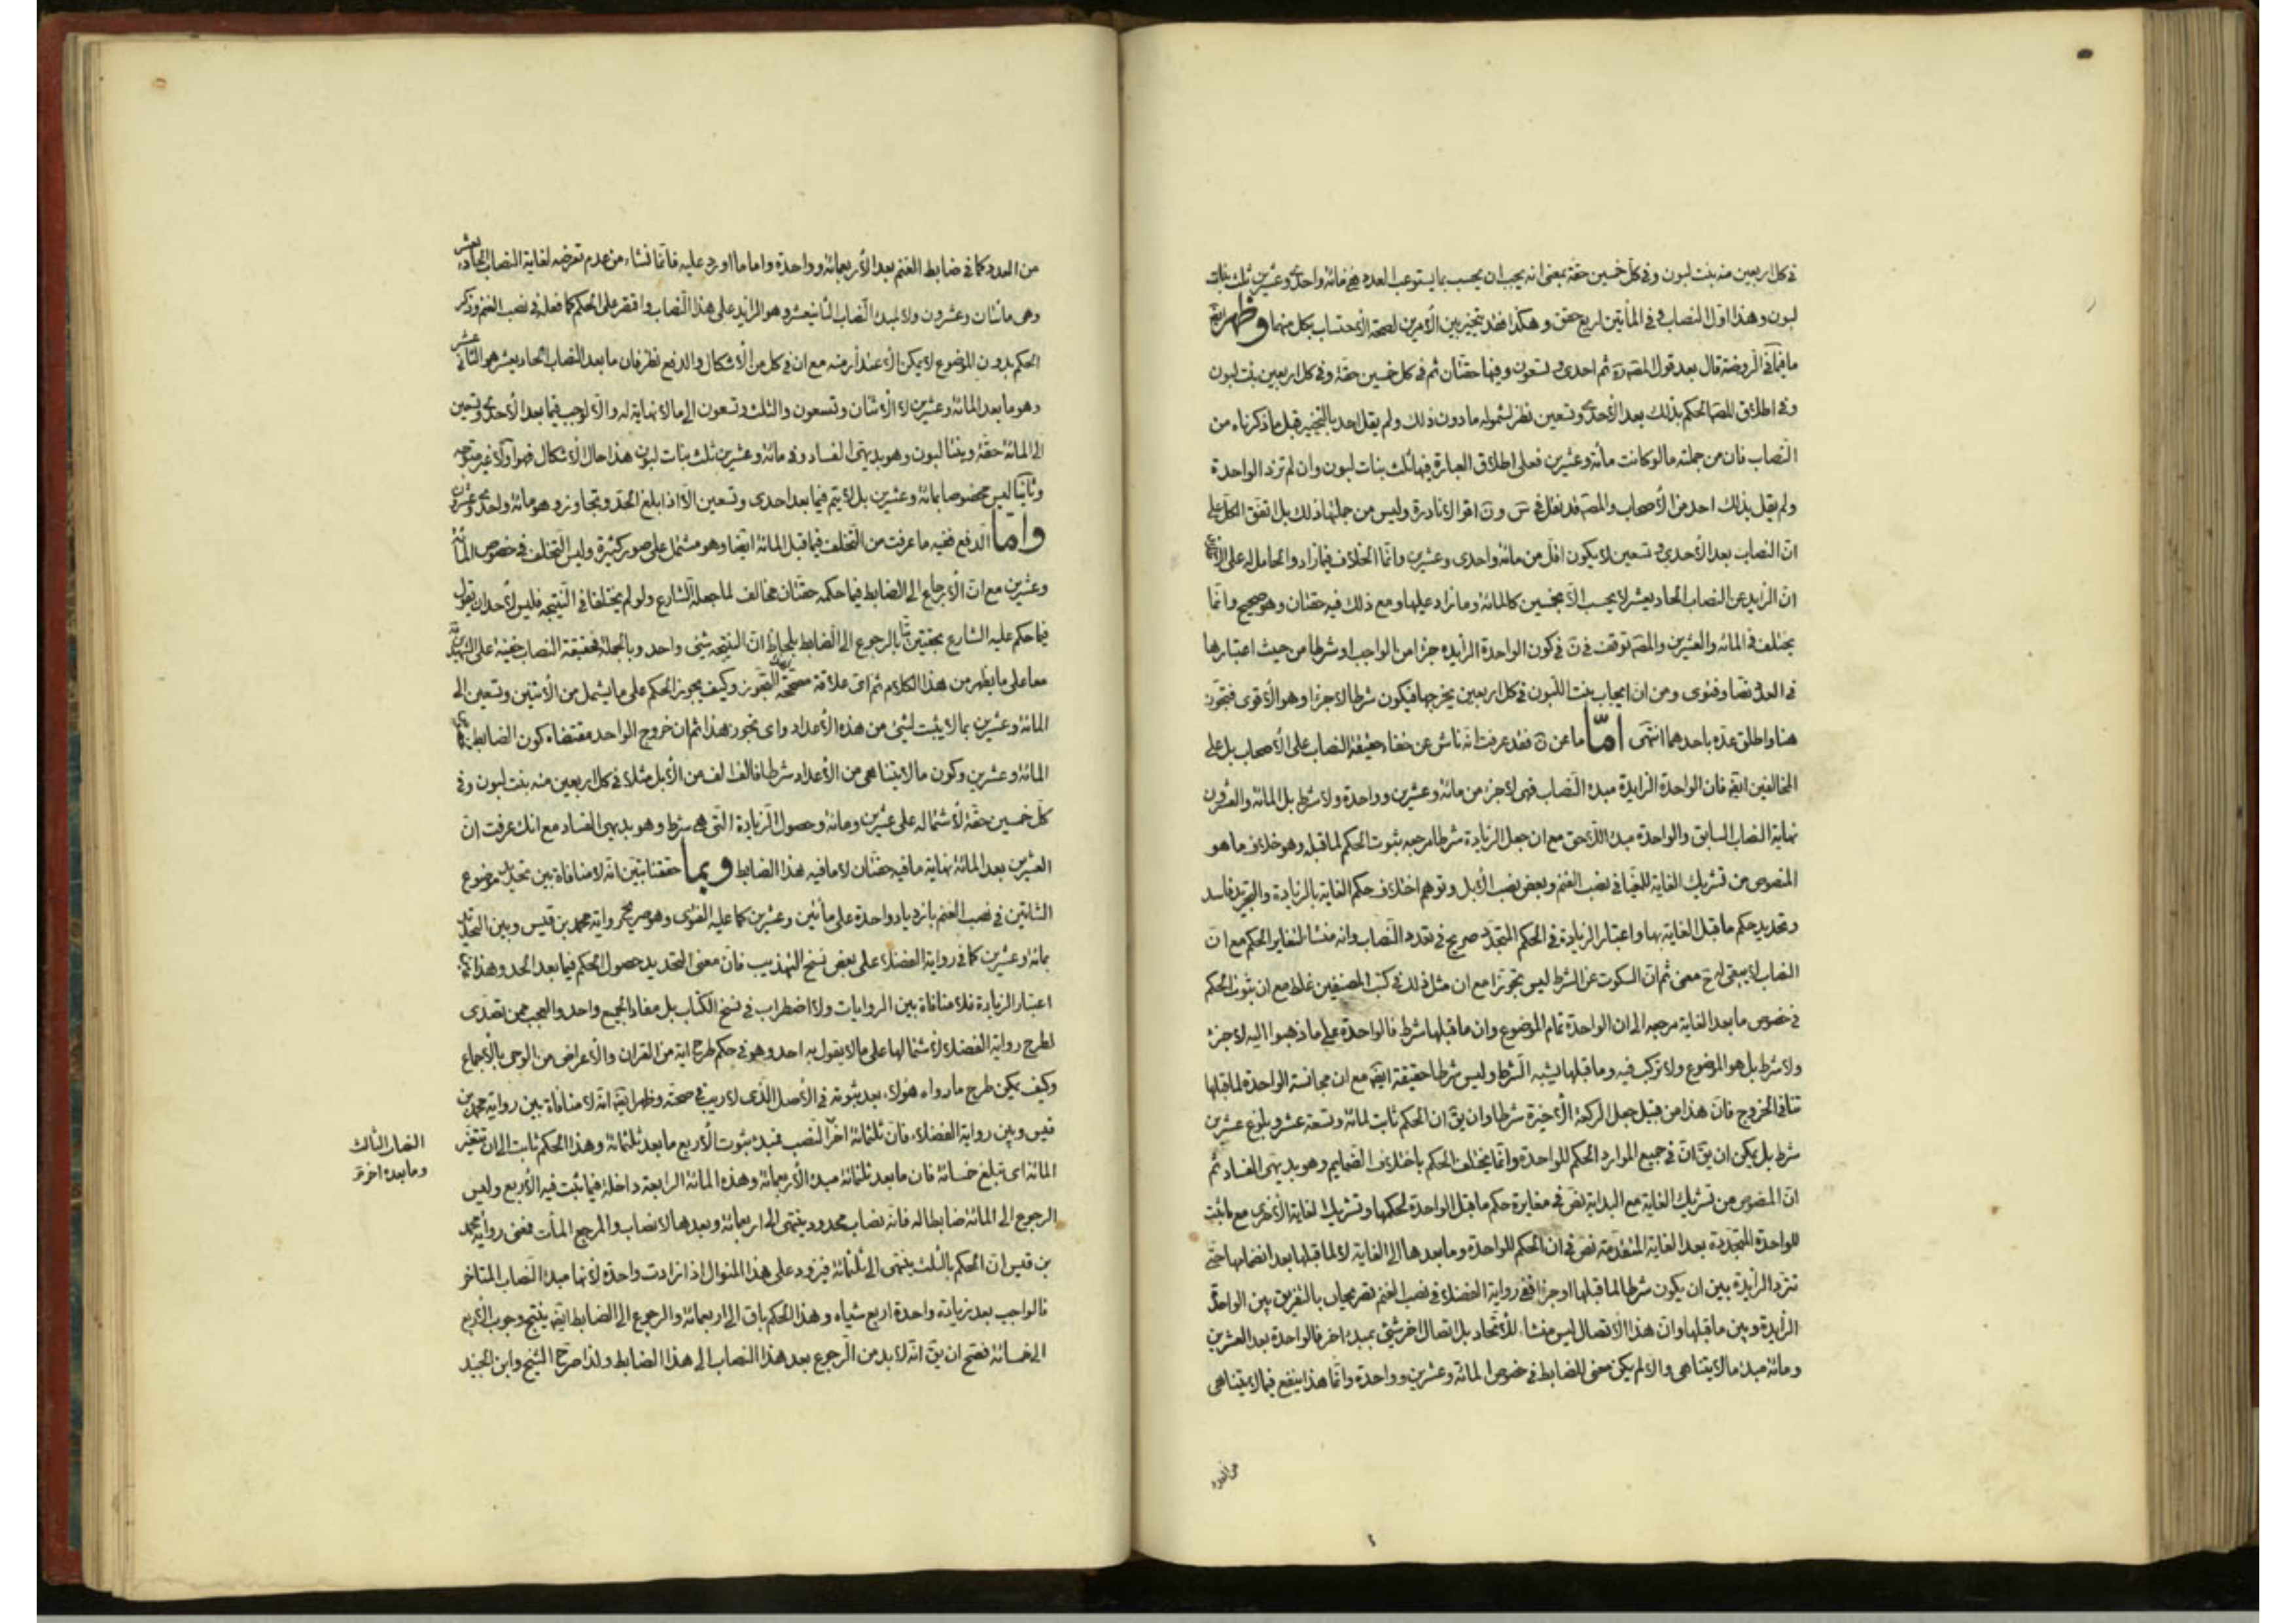 في كل اربعين منه بنت لبون وفي كل خمسين حقة بمعنى انه يجب ان يحسب بما يستوعب العدد ففي مائة واحدى وعشرين ثلث بنات
لبون وهذا اول النصاب وفي المأتين اربع حقق وهكذا فقد يتخير بين الأمرين لصحة الأحتساب بكل منهما وظهر
ما في الروضة قال بعد قول المصنف ره ثم احدى وتسعون وفيها حقتان ثم في كل خمسين حقة وفي كل اربعين بنت لبون
وفي اطلاق المصه الحكم بذلك بعد الأحدى وتسعين نظر لشموله ما دون ذلك ولم يقل احد بالتخيير قبل ما ذكرناه من
النصاب فان من جملته ما لو كانت مائة وعشرين فعلى اطلاق العبارة فيها ثلث بنات لبون وان لم تزد الواحدة
ولم يقل بذلك احد من الأصحاب والمصه قد نقل في س و ن اقوالا نادرة وليس من جملتها ذلك بل اتفق الكل على
ان النصاب بعد الأحدى وتسعين لا يكون اقل من مائة واحدى وعشرين وانما الخلاف فيما زاد والحامل له على
ان الزايد عن النصاب الحاديعشر لا يحسب الا بخمسين كالمائة وما زاد عليها ومع ذلك فيه حقتان وهو صحيح وانما
يختلف في المائة والعشرين والمصه توقف في ن في كون الواحدة الزايدة جزا من الواجب او شرطا من حيث اعتبارها
في العدد نصا وفتوى ومن ان ايجاب بنت اللبون في كل اربعين يخرجها فيكون شرطا لا جزا وهو الأقوى فتجوز
هنا واطلق عده باحدهما انتهى امّا ما عن ن فقد عرفت انه ناش عن خفاء حقيقة النصاب على الأصحاب بل على
المخالفين ايضه فان الواحدة الزايدة مبدء النصاب فهى لا جزء من مائة وعشرين وواحدة ولا شرط بل المائة والعشرون
نهاية النصاب السابق والواحدة مبدء اللاحق مع ان جعل الزيادة شرطا مرجعه ثبوت الحكم لما قبله وهو خلاف ما هو
المنصوص من تشريك الغاية للمغيا في نصب الغنم وبعض نصب الأبل وتوهم اختلاف حكم الغاية بالزيادة والتجريد فاسد
وتحديد حكم ما قبل الغاية بها واعتبار الزيادة في الحكم المتجدد صريح في تعدد النصاب وانه منشأ لتغاير الحكم مع ان
النصاب لا يبقى له ح معنى ثم ان السكوت عن الشرط ليس تجوزا مع ان مثل ذلك في كتب المصنفين غلط مع ان ثبوت الحكم
في خصوص ما بعد الغاية مرجعه الى ان الواحدة تمام الموضوع وان ما قبلها شرط فالواحدة على ما ذهبوا اليه لا جزء
ولا شرط بل هو الموضوع ولا تركيب فيه وما قبلها يشبه الشرط وليس شرطا حقيقة ايضه مع ان مجانسة الواحدة لما قبلها
تنافي الخروج فان هذا من قبيل جعل الركعة الأخيرة شرطا وان يق ان الحكم ثابت لمائة وتسعة عشر وبلوغ عشرين
شرط بل يمكن ان يق ان في جميع الموارد الحكم للواحدة وانما يختلف الحكم باختلاف الضمايم وهو بديهى الفساد ثم
ان المنصوص من تشريك الغاية مع البداية نص في مغايرة حكم ما قبل الواحدة لحكمها وتشريك الغاية الأخرى مع ما ثبت
للواحدة المتجددة بعد الغاية المتقدمة نص في ان الحكم للواحدة وما بعدها الى الغاية لا لما قبلها بعد انضمامها حتى
تردد الزايدة بين ان يكون شرطا لما قبلها او جزا ففي رواية الفضلاء في نصب الغنم تصريحان بالتفريق بين الواحدة
الزايدة وبين ما قبلها وان هذا الاتصال ليس منشاء للأتحاد بل اتصال اخر شئ بمبدء اخر فالواحدة بعد العشرين
ومائة مبدء ما لا يتناهى والا لم يكن معنى للضابط في خصوص المائة وعشرين وواحدة وانما هذا ينفع فيما لا يتناهى
من العدد
من العدد كما في ضابط الغنم بعد الأربعمائة وواحدة واما ما اورد عليه فانما نشاء من عدم تعرضه لغاية النصاب الحاديعشر
وهى مائتان وعشرون ولا لمبدء النصاب الثانيعشر وهو الزايد على هذا النصاب واقتصر على الحكم كما فعله في نصب الغنم وذكر
الحكم بدون الموضوع لا يمكن الأعتذار منه مع ان في كل من الأشكال والدفع نظر فان ما بعد النصاب الحاديعشر هو الثانى عشر
وهو ما بعد المائة وعشرين لا الأثنان وتسعون والثلث وتسعون الى ما لا نهاية له والا لوجب فيما بعد الأحدى وتسعين
الى المائة حقة وبنتا لبون وهو بديهى الفساد وفي مائة وعشرين ثلث بنات لبون هذا حال الأشكال فهو اولا غير متوجه
وثانيا ليس مخصوصا بمائة وعشرين بل لا يتم فيما بعد احدى وتسعين الا اذا بلغ الحد وتجاوز وهو مائة واحدى وعشرون
وامّا الدفع ففيه ما عرفت من التخلف فيما قبل المائة ايضا وهو مشتمل على صور كثيرة وليس التخلف في خصوص المائة
وعشرين مع ان الأرجاع الى الضابط فيما حكمه حقتان مخالف لما جعله الشارع ولو لم يختلفا في النتيجة فليس لأحد ان يقول
فيما حكم عليه الشارع بحقتين بالرجوع الى الضابط بلحاظ ان النتيجة شئ واحد وبالجملة فحقيقة النصاب خفية على الشهيدين
معا على ما يظهر من هذا الكلام ثم اى علاقة مصححة للتجوز وكيف يجوز الحكم على ما يشمل من الأثنين وتسعين الى
المائة وعشرين بما لا يثبت لشئ من هذه الأعداد واى تجوز هذا ثم ان خروج الواحد مقتضاه كون الضابط
المائة وعشرين وكون ما لا يتناهى من الأعداد شرطا فالف الف من الأبل مثلا في كل اربعين منه بنت لبون وفي
كل خمسين حقة لأشتماله على عشرين ومائة وحصول الزيادة التى هى شرط وهو بديهى الفساد مع انك عرفت ان
العشرين بعد المائة نهاية ما فيه حقتان لا ما فيه هذا الضابط وبما حققنا تبين انه لا منافاة بين تحديد موضوع
الشاتين في نصب الغنم بازدياد واحدة على مأتين وعشرين كما عليه الفتوى وهو صريح رواية محمد بن قيس وبين التحديد
بمائة وعشرين كما في رواية الفضلاء على بعض نسخ التهذيب فان معنى التحديد حصول الحكم فيما بعد الحد وهذا
اعتبار الزيادة فلا منافاة بين الروايات ولا اضطراب في نسخ الكتاب بل مفاد الجميع واحد والعجب ممن تصدى
لطرح رواية الفضلاء لأشتمالها على ما لا يقول به احد وهو في حكم طرح اية من القران والأعراض من الوحى بالأجماع
وكيف يمكن طرح ما رواه هؤلاء بعد ثبوته في الأصل الذى لا ريب في صحته وظهر ايضه انه لا منافاة بين رواية محمد بن
قيس وبين رواية الفضلاء فان ثلثمائة اخر النصب فمبدء ثبوت الأربع ما بعد ثلثمائة وهذا الحكم ثابت الى ان تتغير
المائة اى تبلغ خمسمائة فان ما بعد ثلثمائة مبدء الأربعمائة وهذه المائة الرابعة داخلة فيما ثبت فيه الأربع وليس
الرجوع الى المائة ضابطا له فانه نصاب محدود ينتهى الى اربعمائة وبعدها لا نصاب والمرجع المأت فمعنى رواية محمد
بن قيس ان الحكم بالثلث ينتهى الى ثلثمائة فيزود على هذا المنوال اذا زادت واحدة لأنها مبدء النصاب المتاخر
فالواجب بعد زيادة واحدة اربع شياه وهذا الحكم باق الى اربعمائة والرجوع الى الضابط ايضه ينتج وجوب الأربع
الى خمسمائة فصح ان يق انه لا بد من الرجوع بعد هذا النصاب الى هذا الضابط ولذا صرح الشيخ وابن الجنيد
النصاب الثالث
وما بعده اخره